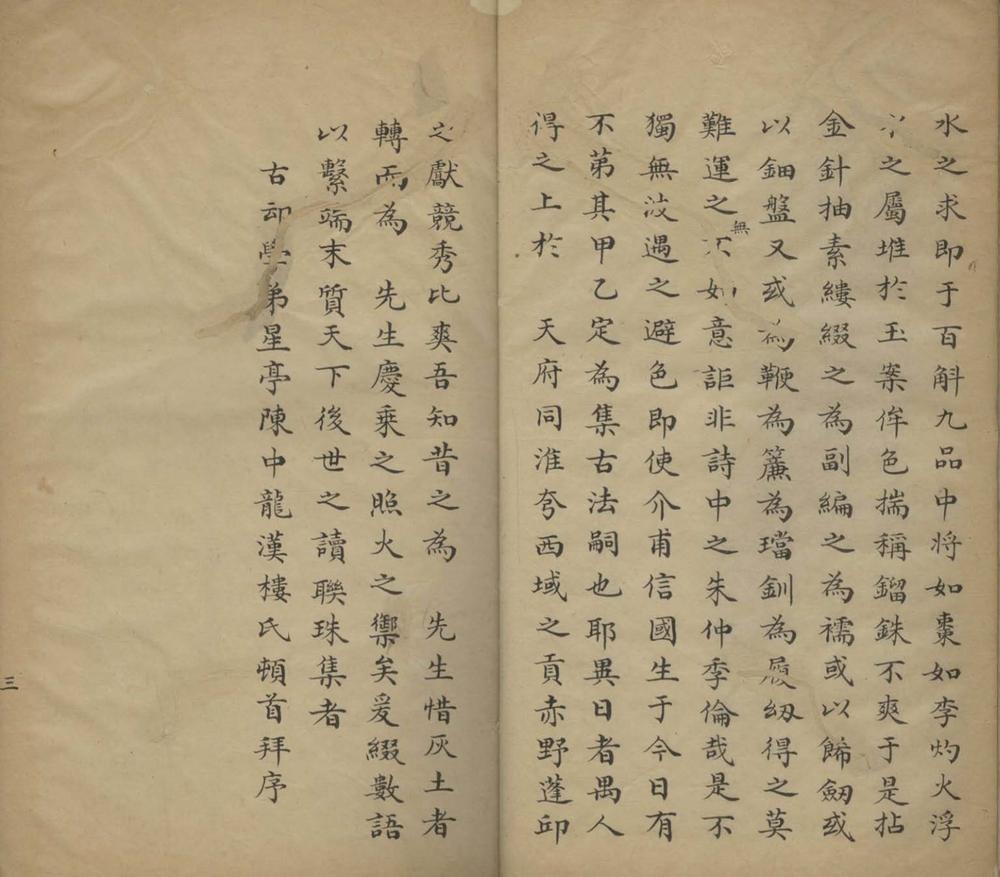 水之求即于百斛九品中将如棗如李灼火浮
水之屬堆於玉案侔色揣稱鎦銖不爽于是拈
金針抽素縷綴之為副編之為襦或以飾劒或
以鈿盤又或為鞭為簾為璫釧為履級得之莫
難運之
無
如意詎非詩中之朱仲季倫哉是不
獨無波遇之避色即使介甫信國生于今日有
不苐其甲乙定為集古法嗣也耶異日者禺人
得之上於 天府同淮夸西域之貢赤野蓬邱
之獻競秀比爽吾知昔之為 先生惜灰土者
轉而為 先生慶乗之照火之禦矣爰綴數語
以繫端末質天下後世之讀聮珠集者
古卭學弟星亭陳中龍漢樓氏頓首拜序
三